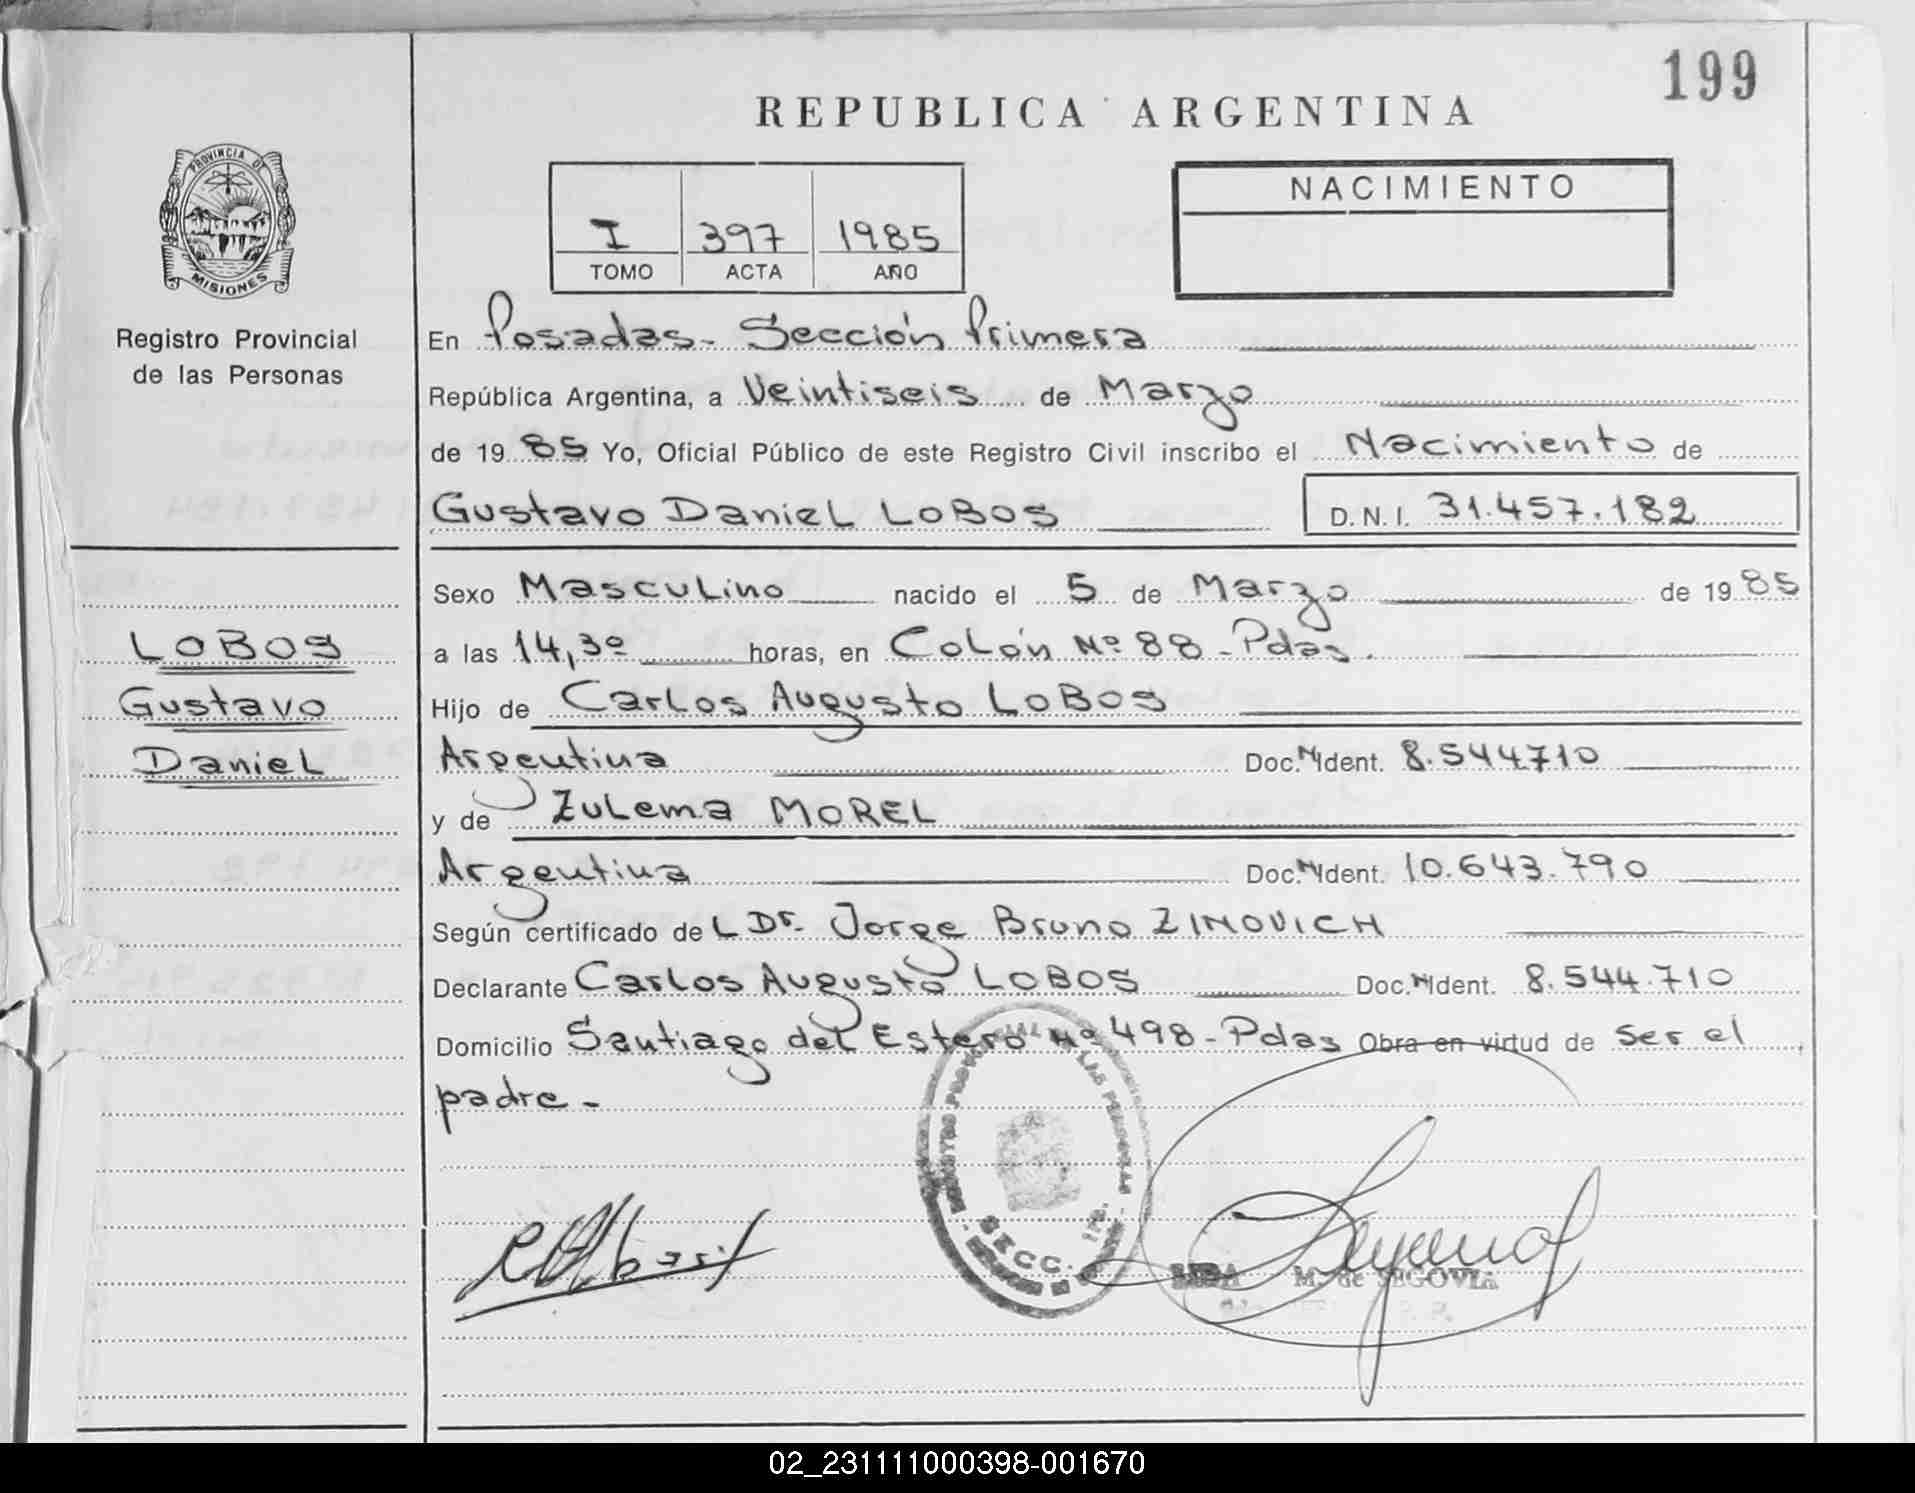 199
REPUBLICA ARGENTINA
PROVINCIA DE
MISIONES
Registro Provincial
de las Personas
I 397 1985
TOMO ACTA AÑO
NACIMIENTO
En Posadas - Sección Primera
República Argentina, a Veintiseis de Marzo
de 19 85 Yo, Oficial Público de este Registro Civil inscribo el Nacimiento de
Gustavo Daniel LOBOS D.N.I. 31.457.182
Sexo Masculino nacido el 5 de Marzo de 19 85
LOBOS
a las 14,30 horas, en Colón Nº 88 - Pdas.
Gustavo
Hijo de Carlos Augusto LOBOS
Daniel
Argentina Doc. N Ident. 8.544710
y de Zulema MOREL
Argentina Doc. N Ident. 10.643.790
Según certificado de L Dr. Jorge Bruno ZINOVICH
Declarante Carlos Augusto LOBOS Doc. N Ident. 8.544.710
Domicilio Santiago del Estero Nº 498 - Pdas Obra en virtud de ser el
padre -
SECC. 1RA.
M. de SEGOVIA
02_231111000398-001670